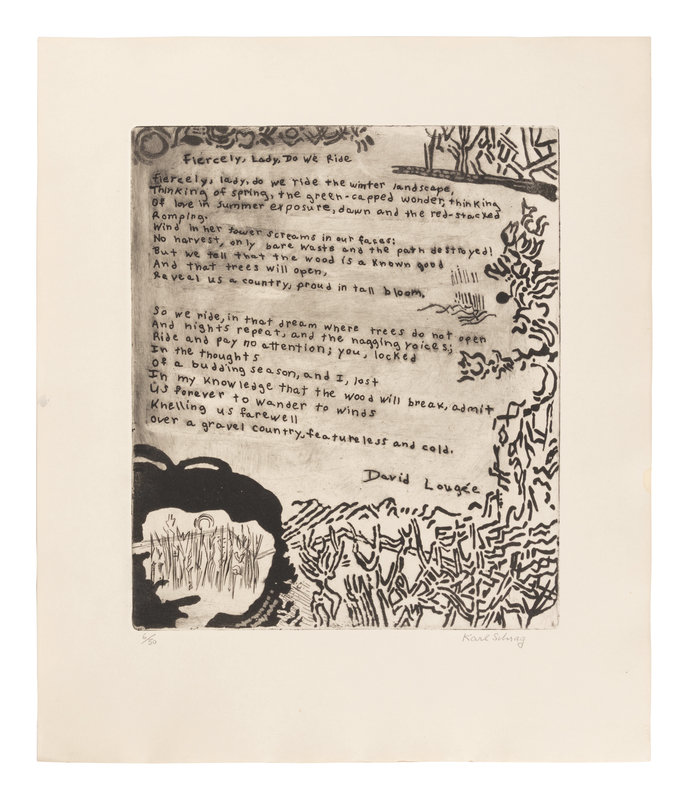 Fiercely, Lady, Do We Ride
Fiercely, lady, do we ride the winter landscape,
Thinking of spring, the green-capped wonder, thinking
Of love in summer exposure, dawn and the red-stacked
Romping.
Wind in her tower screams in our faces:
No harvest, only bare waste and the path destroyed!
But we tell that the wood is a known good
And that trees will open,
Reveal us a country, proud in tall bloom.
So we ride, in that dream where trees do not open
And nights repeat, and the nagging voices;
Ride and pay no attention; you, locked
In the thoughts
Of a budding season, and I, lost
In my knowledge that the wood will break, admit
Us forever to wander to winds
Knelling us farewell
Over a gravel country, featureless and cold.
David Lougée
6/50 Karl Schrag